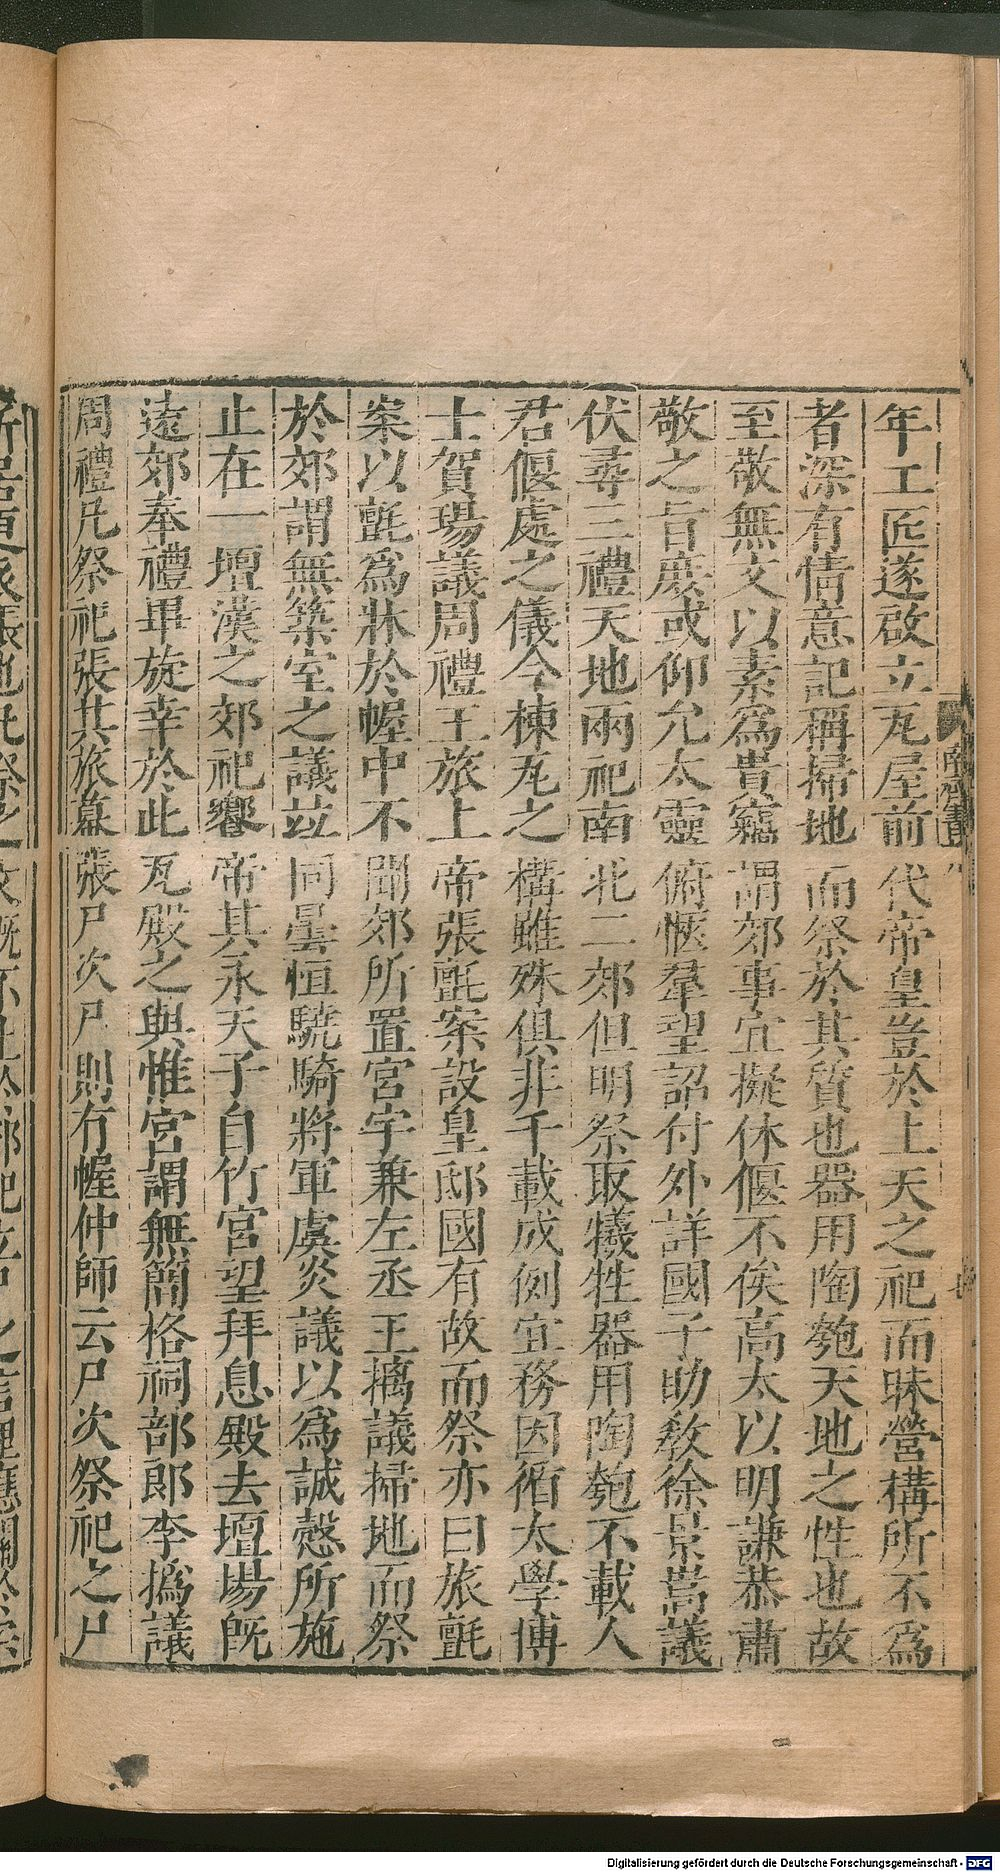 年工匠遂啟立瓦屋前代帝皇豈於上天之祀而昧營構所不爲
者深有情意記稱掃地而祭於其質也器用陶匏天地之性也故
至敬無文以素爲貴竊謂郊事宜擬休偃不俟高大以明謙恭肅
敬之旨庶或仰允太靈俯愜羣望詔付外詳國子助教徐景嵩議
伏尋三禮天地兩祀南北二郊但明祭取犧牲器用陶匏不載人
君偃處之儀今棟瓦之構雖殊俱非千載成例宜務因循太學博
士賀瑒議周禮王旅上帝張氈案設皇邸國有故而祭亦曰旅氈
案以氈爲牀於幄中不聞郊所置宮宇兼左丞王摛議掃地而祭
於郊謂無築室之議竝同曇恒驍騎將軍虞炎議以爲誠慤所施
止在一壇漢之郊祀饗帝其永天子自竹宮望拜息殿去壇場旣
遠郊奉禮畢旋幸於此瓦殿之與帷宮謂無簡格祠部郎李撝議
周禮凡祭祀張其旅幕張尸次尸則有幄仲師云尸次祭祀之尸
南齊書
Digitalisierung gefördert durch die Deutsche Forschungsgemeinschaft - DFG